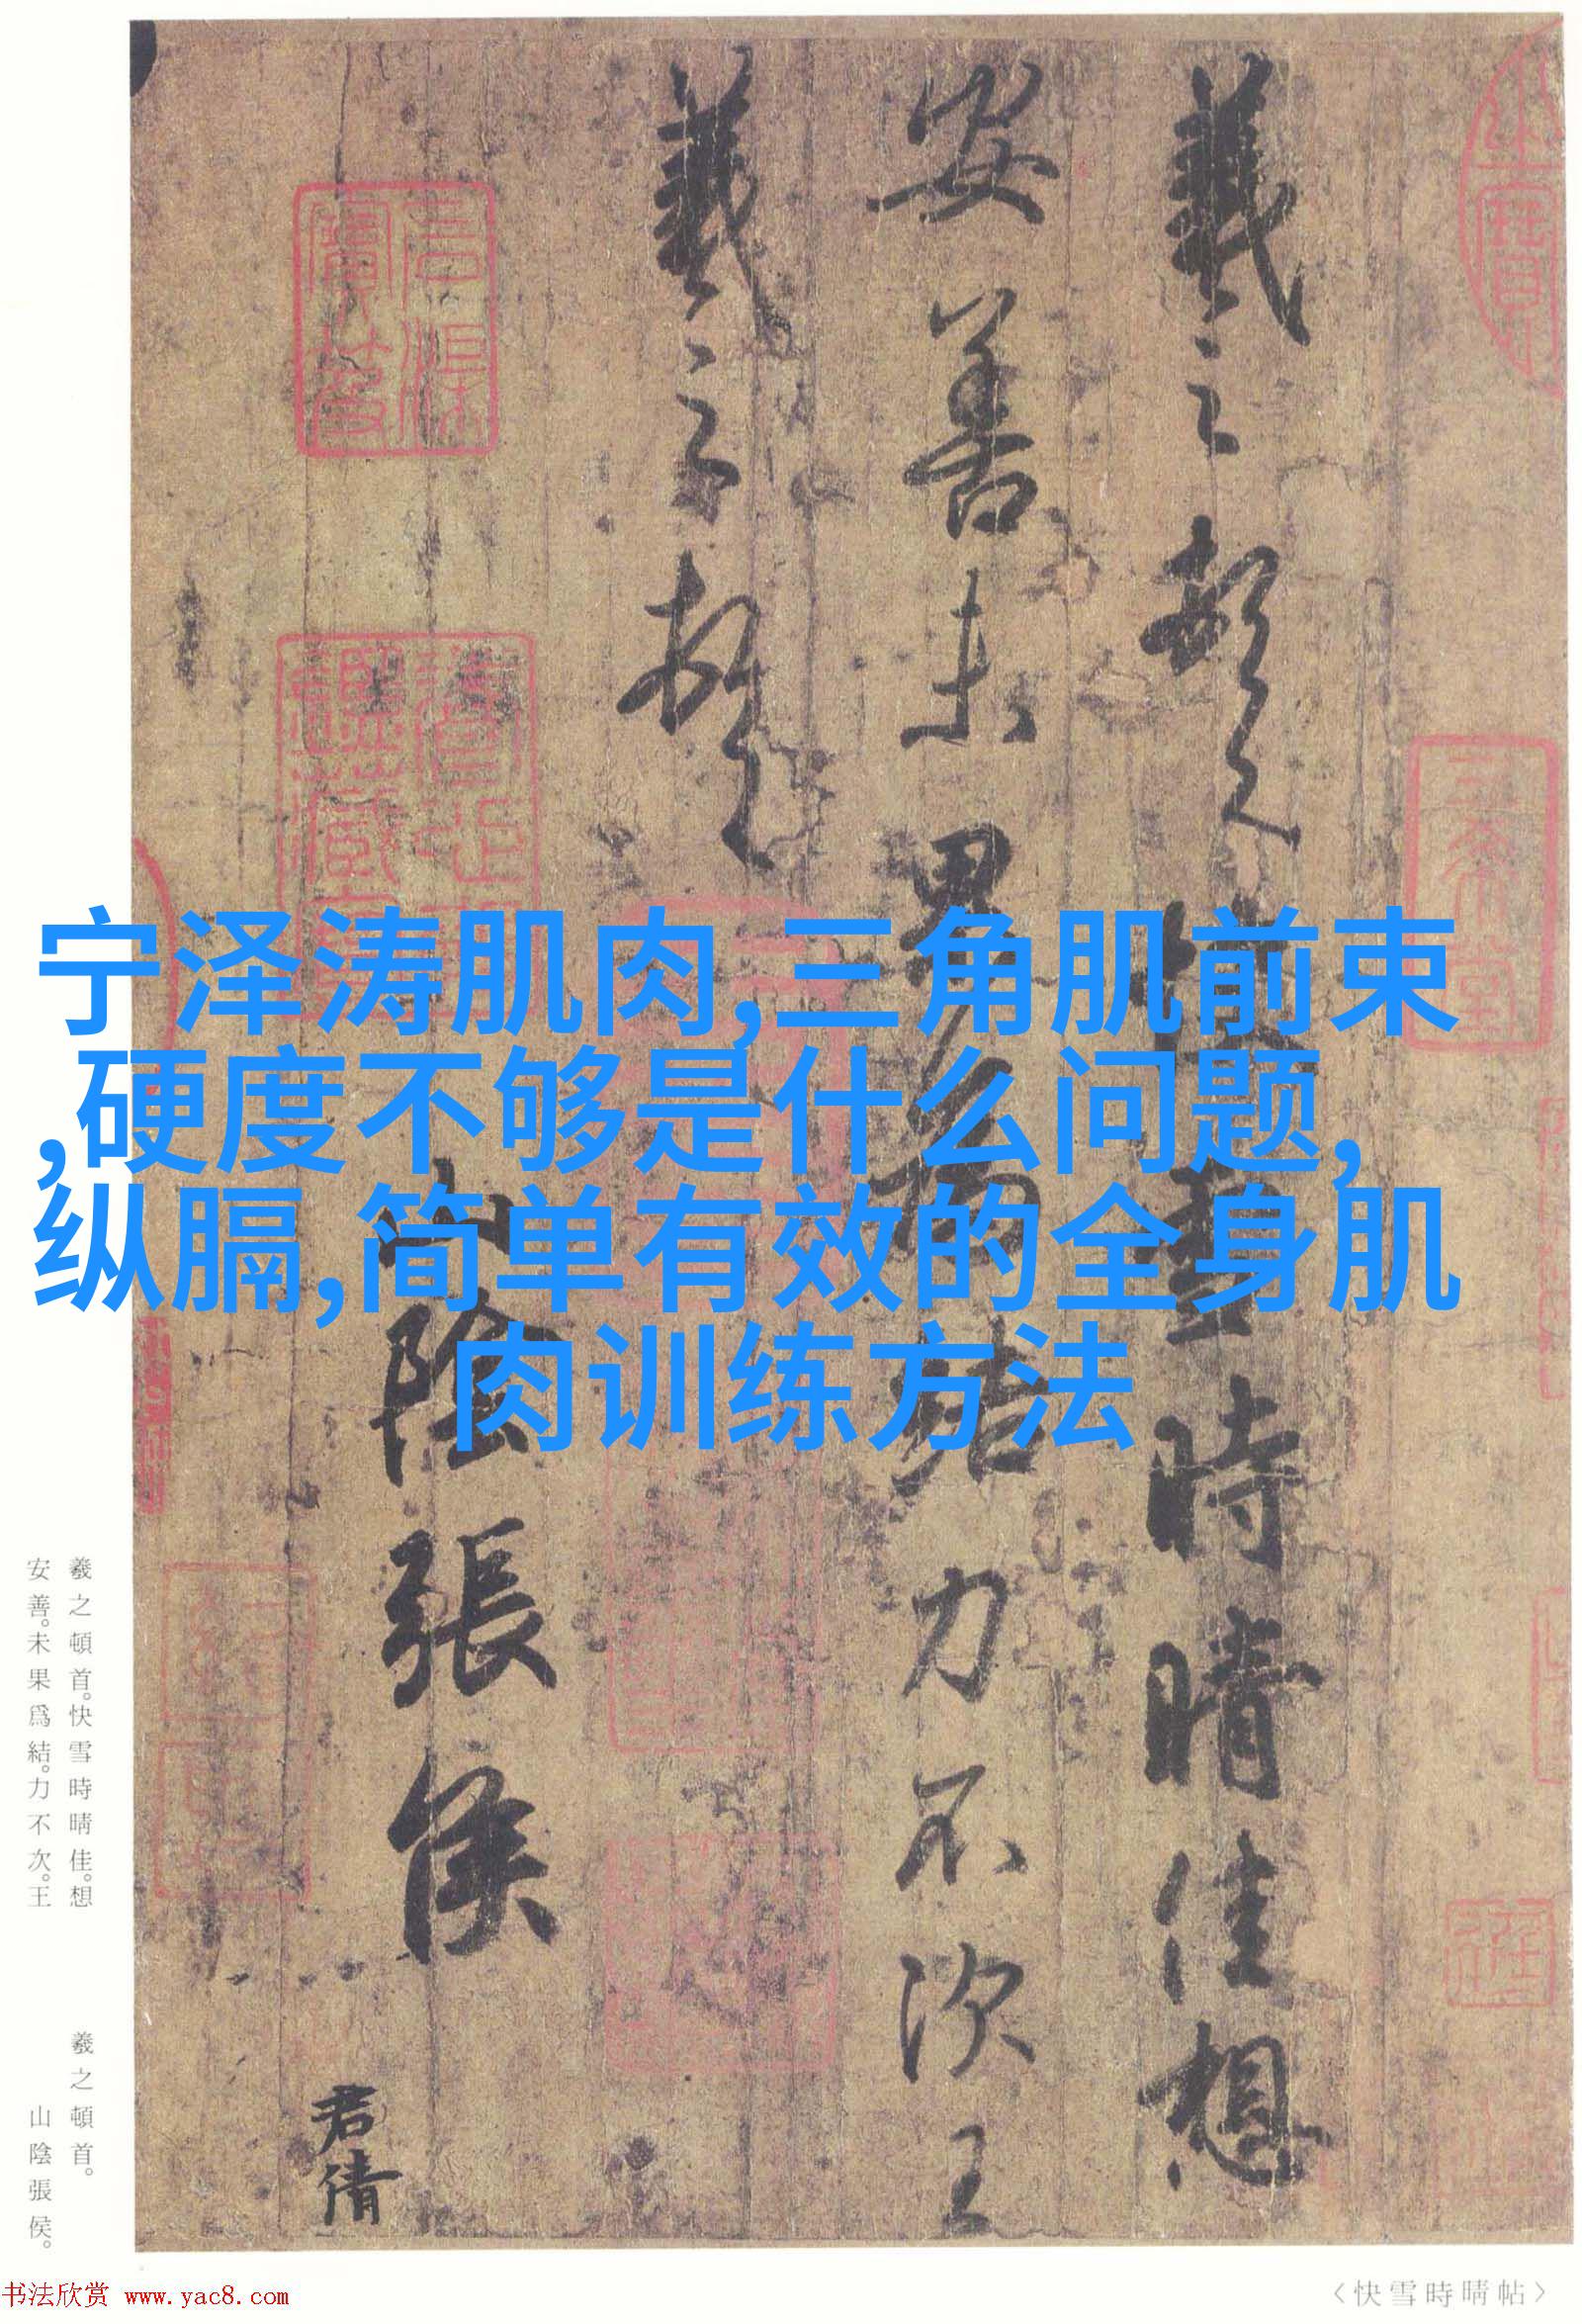 宁泽涛肌肉,三角肌前束
,硬度不够是什么问题,
纵膈,简单有效的全身肌
肉训练方法
羲之頓首
快雪時晴佳想
安善未果為結力不次王
羲之頓首
山陰張侯
君倩
羲之頓首。快雪時晴佳。想
安善。未果爲結。力不次。王
羲之頓首。
山陰張侯。
〈快雪時晴帖〉
书法欣赏 www.yac8.com